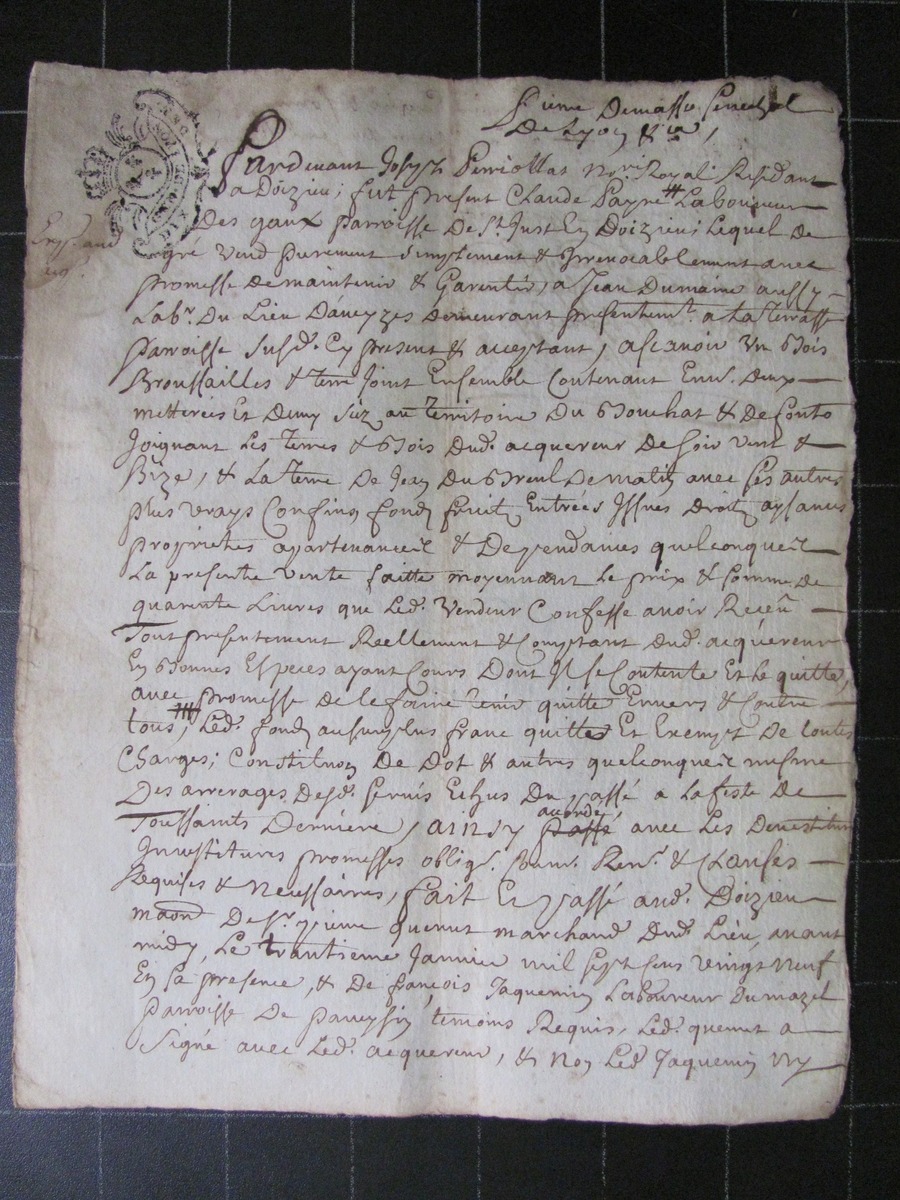 Pierre Demasso Senechal
De Lyon &
Pardevant Joseph Perriollat No.re Royal Residant
a Doizieu; fut present Claude Payre Laboureur
Des gaux parroisse De St Just En Doizieu; Lequel De
gré vend purement simplement & Irrevocablement avec
promesse de maintenir & Garentir, a Jean Dumaine aussy
Labr. Du Lieu Daveyzes demeurant presentemt. a La Terrasse
parroisse susd. Cy present & acceptant, ascavoir Un Bois
Broussailles & terre Joint Ensemble Contenant Env. deux
metterées Et Demy Siz au territoire Du Bouchat & de
Joignant Les terres & Bois Dud. acquereur De soir vent &
Bize, & La Terre De Jean Du Breul De matin avec ses autres
plus vrays Confins fonds fruits Entrées Issues Droits aysances
proprietés apartenances & Dependances quelconques
La presente vente faitte moyennant Le prix & somme de
quarente Livres que Led. Vendeur Confesse avoir Receu
Tout presentement Reellement & Comptant Dud. acquereur
En Bonnes Especes ayant Cours Dont Il se Contente Et Le quitte
avec promesse de le faire tenir quitte Envers & Contre
tous, Led. fonds au surplus franc quitte Et Exempt De toutes
Charges; Constitution De Dot & autres quelconques mesme
Des arrerages Desd. servis Echus Du passé a La feste De
Toussaints Derniere, ainsy passé accordé avec Les Devestitures
Investitures promesses oblig. Soum. Ren. & Clauses
Requises & Necessaires, fait Et passé aud. Doizieu
maon De Sr. pierre quemet marchand Dud. Lieu avant
midy, Le trantieme Janvier mil sept sens vingt neuf
En sa presence, & De françois Jaquemin Laboureur Du mazel
parroisse De Paveysin temoins Requis, Led. quemet a
Signé avec Led. acquereur, & non Led. Jaquemin Ny